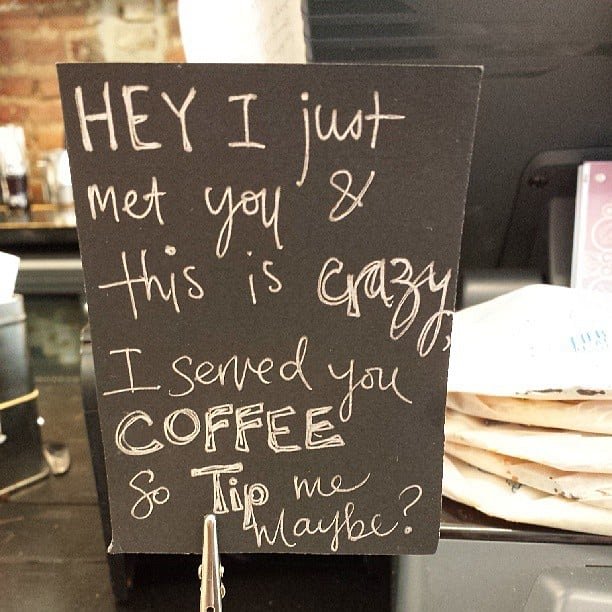 HEY I just
met you &
this is crazy,
I served you
COFFEE
So Tip me
Maybe?